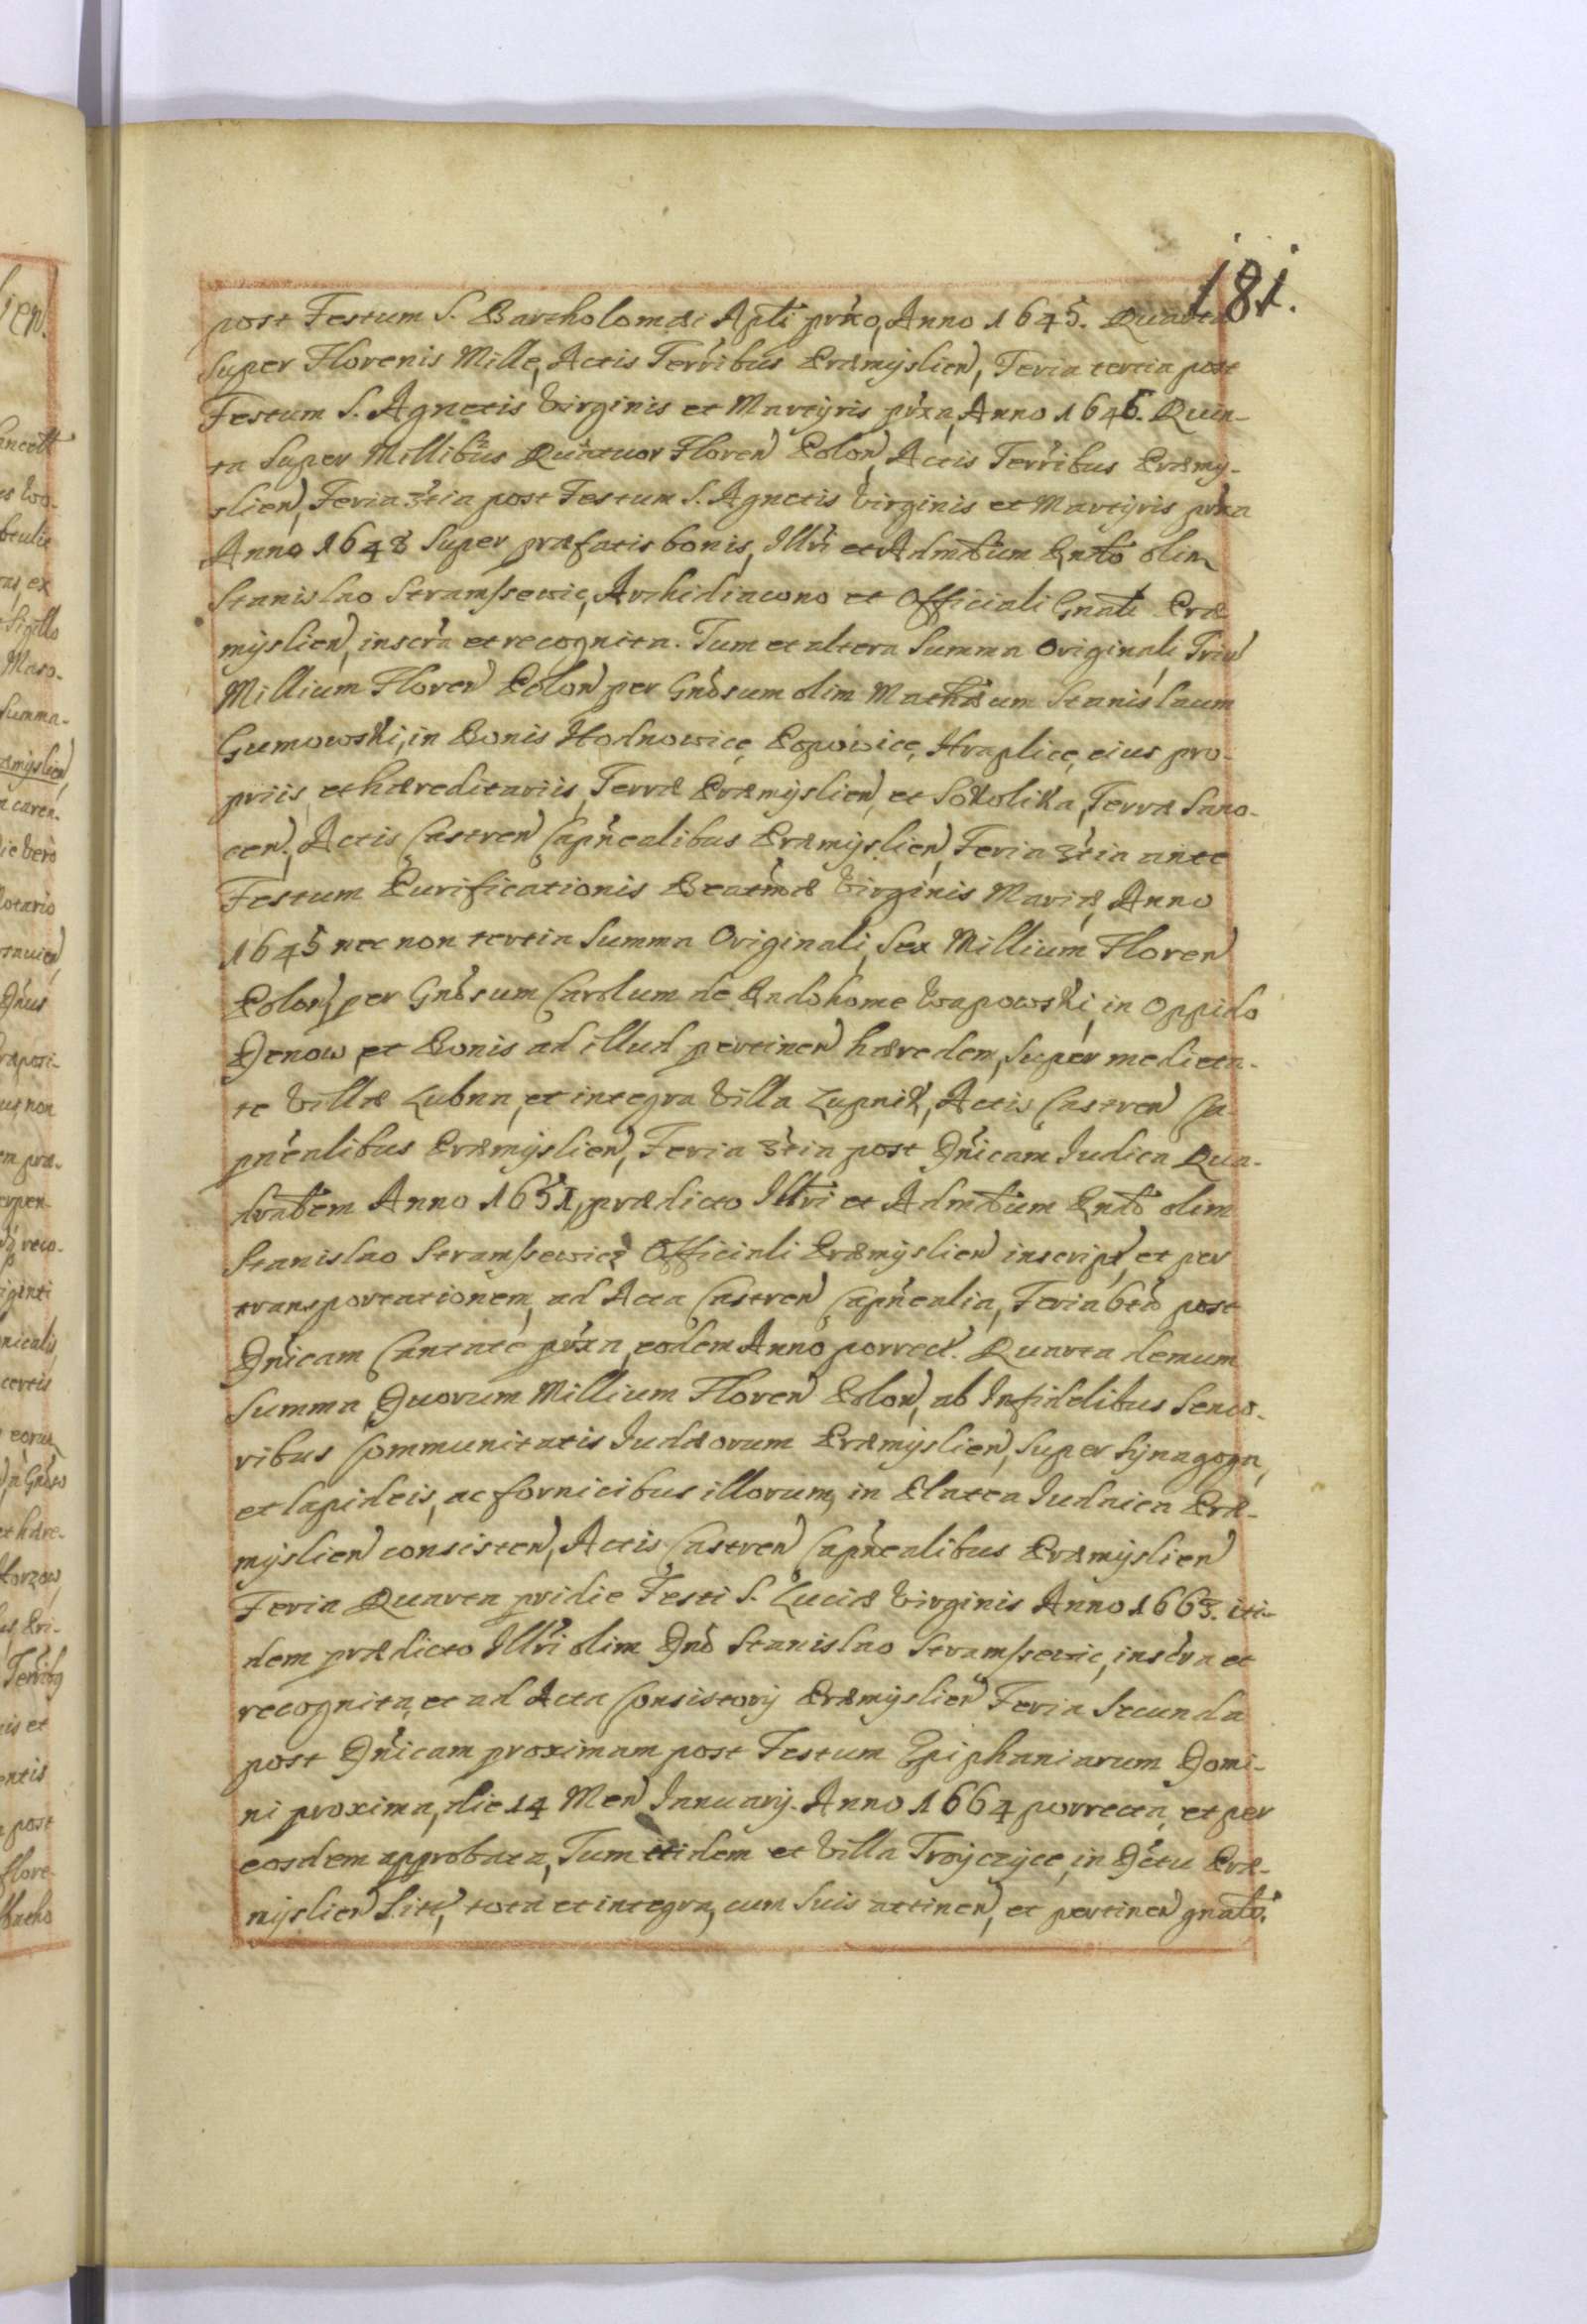 181.
post Festum S. Bartholomæi Apti prxo, Anno 1645. Quarta
Super Florenis Mille, Actis Terribus Præmyslien, Feria tertia post
Festum S. Agnetis Virginis et Martyris prxa, Anno 1646. Quin-
ta Super Millibus Quatuor Floren Polon, Actis Terribus Præmy-
slien, Feria 3tia post Festum S. Agnetis Virginis et Martyris prxa
Anno 1648 Super præfatis bonis, Illri et Admodum Rndo olim
Stanislao Stramszewic, Archidiacono et Officiali Gnali Præ
myslien, inscra et recognita. Tum et altera Summa Originali Triu
Millium Floren Polon per Gnosum olim Mathæum Stanislaum
Gumowski, in Bonis Hodnowice, Popowice, Hraplice, eius pro-
priis et hæreditariis, Terræ Præmyslien, et Sokolika, Terræ Sano-
cen, Actis Castren Capnealibus Præmyslien, Feria 3tia ante
Festum Purificationis Beatmæ Virginis Mariæ, Anno
1645 nec non tertia Summa Originali, Sex Millium Floren
Polon, per Gnosum Carolum de Radohome Wapowski, in Oppido
Dynow, et Bonis ad illud pertinen hæredem, Super medieta-
te Villæ Lubna, et integra Villa Lupnik, Actis Castren Ca-
pnealibus Præmyslien, Feria 3tia post Dnicam Iudica Qua-
dralem Anno 1651, prædicto Illri et Admodum Rndo olim
Stanislao Stramszewicz Officiali Præmyslien inscript, et per
transportationem, ad Acta Castren Capnealia, Feria 6ta post
Dnicam Cantate prxa, eodem Anno porrect. Quarta demum
Summa Duorum Millium Floren Polon, ab Infidelibus Senio-
ribus Communitatis Iudæorum Præmyslien, Super Synagoga,
et lapideis, ac fornicibus illorum, in Platea Iudaica Præ-
myslien consisten, Actis Castren Capnealibus Præmyslien
Feria Quarta pridie Festi S. Luciæ Virginis Anno 1663. iti-
dem prædicto Illri olim Dno Stanislao Stramszewic, inscra et
recognita, et ad Acta Consistorij Præmyslien Feria Secunda
post Dnicam proximam post Festum Epiphaniarum Domi-
ni proxima, die 14 Men Ianuarij. Anno 1664 porrecta, et per
eosdem approbata, Tum itidem et Villa Troyczyce, in Dctu Præ-
myslien Sit, tota et integra, cum Suis attinen, et pertinen gnalr.